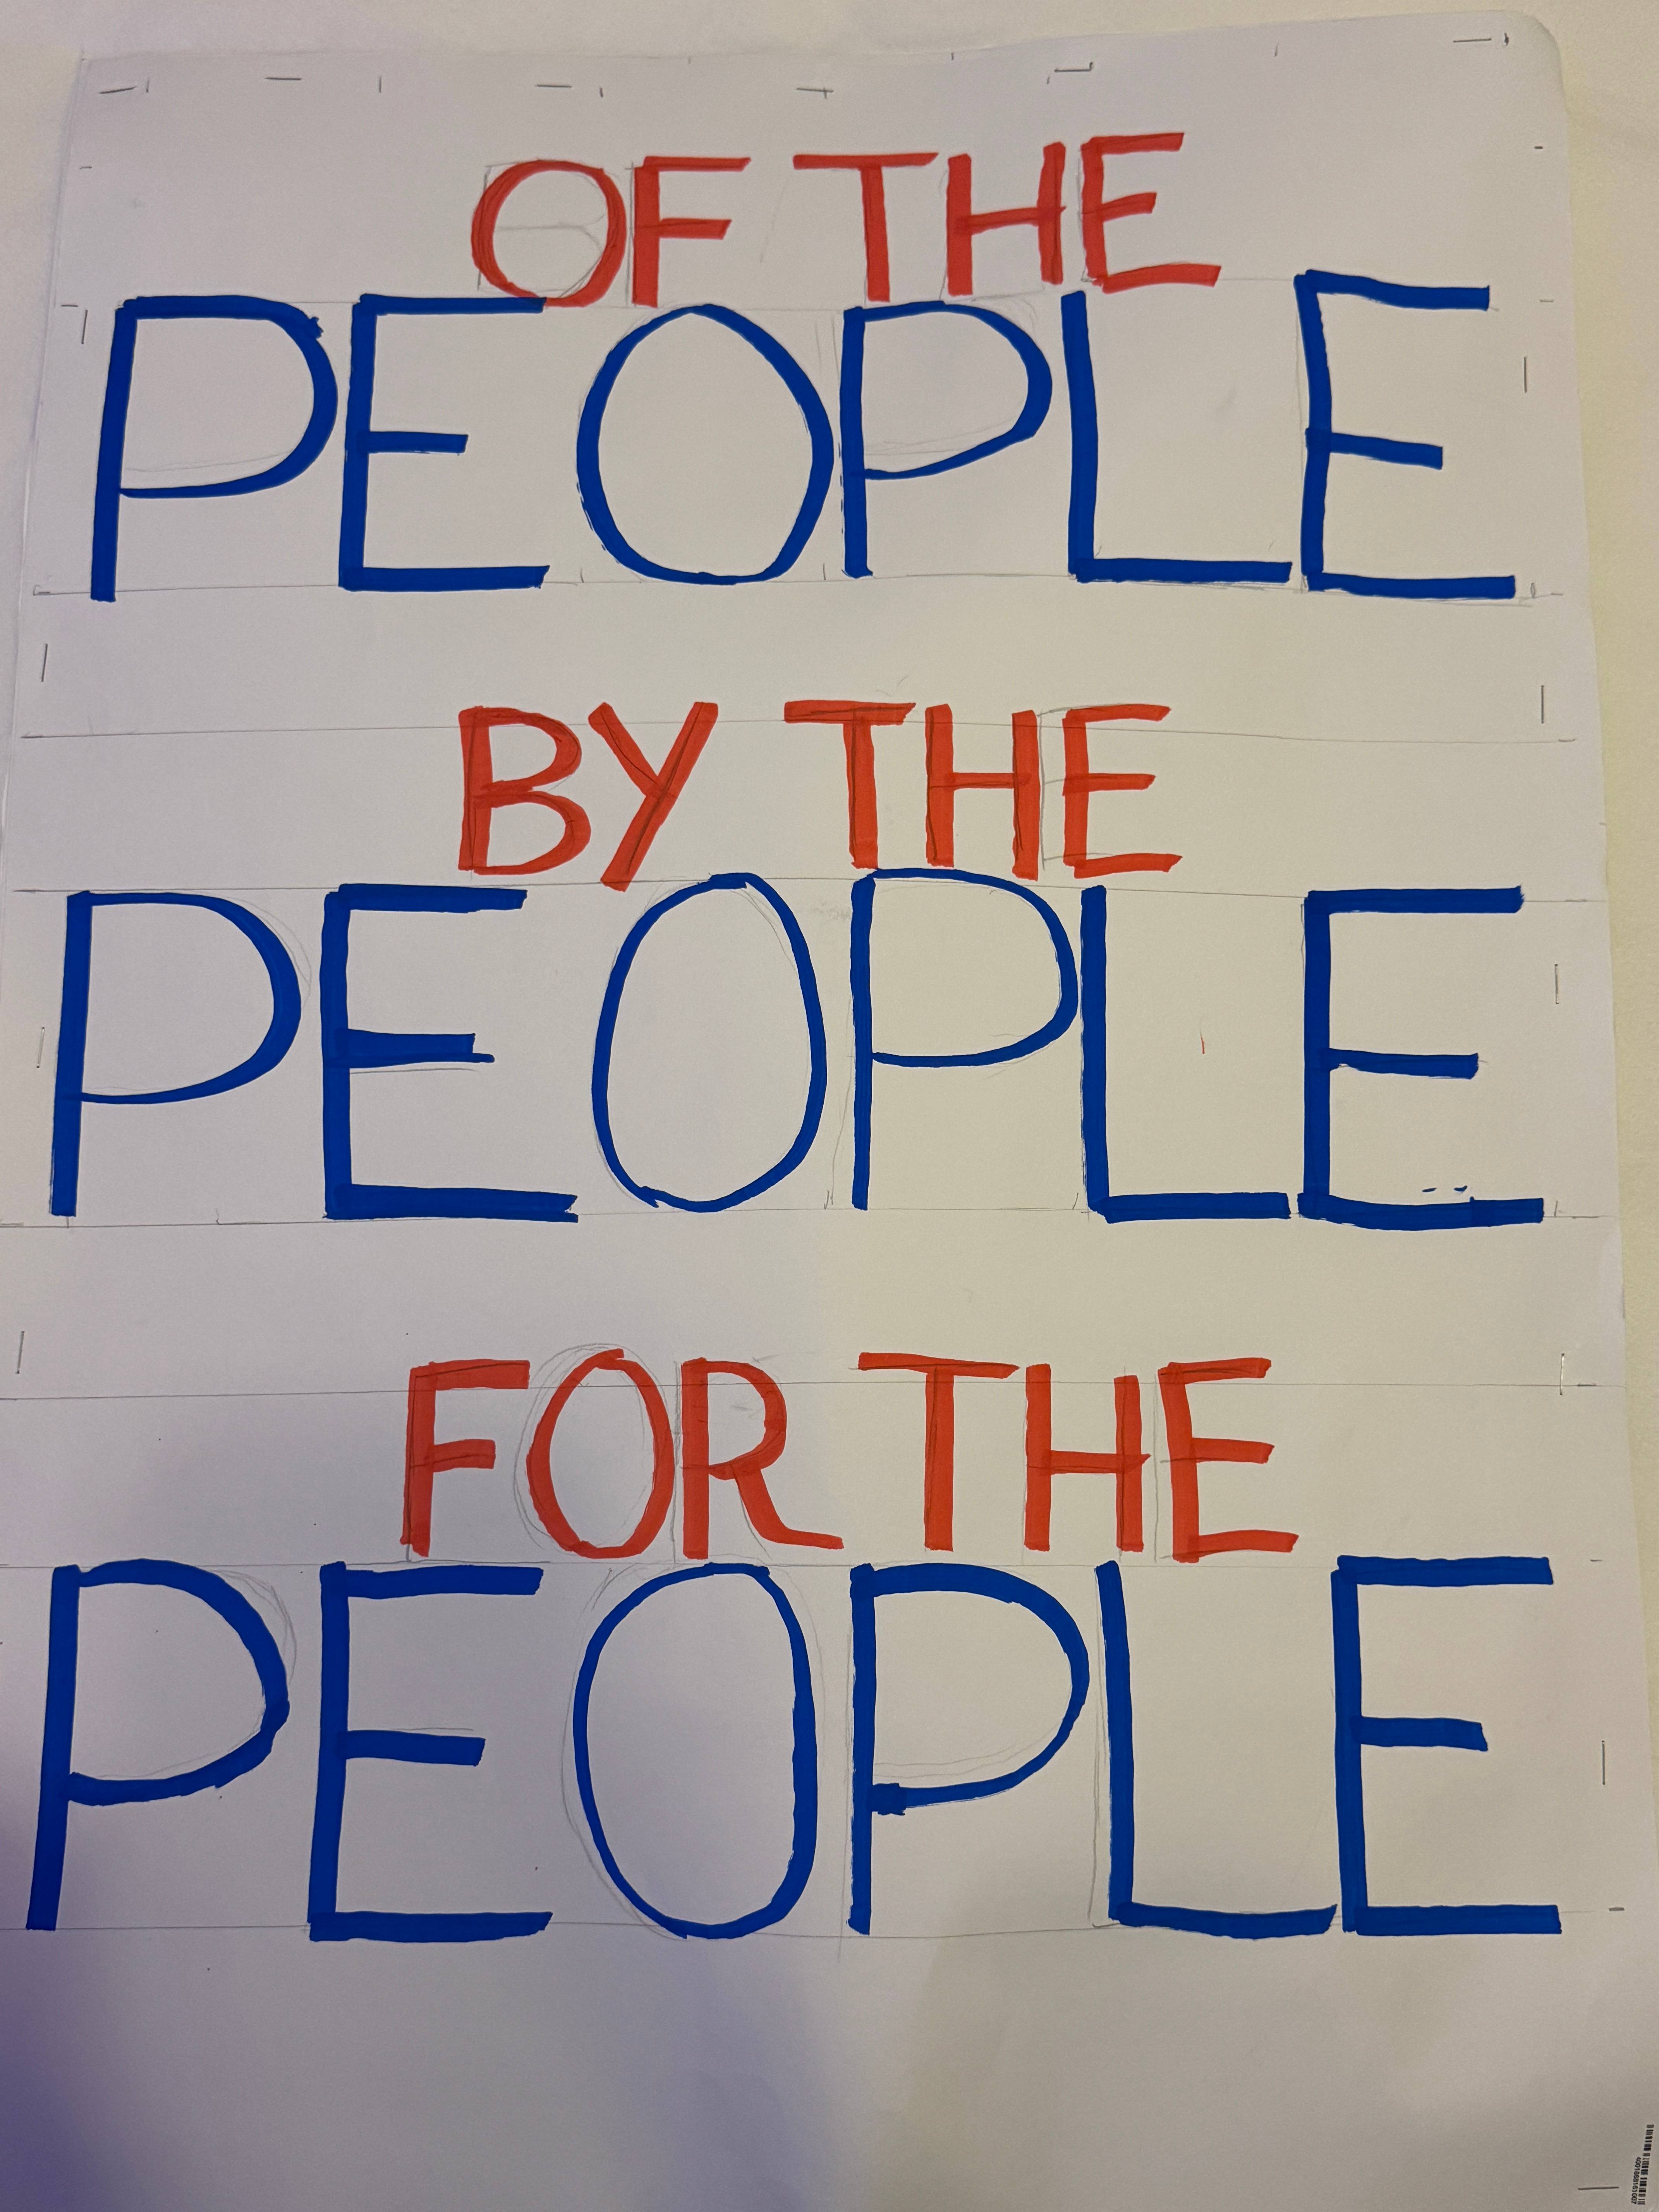 OF THE
PEOPLE
BY THE
PEOPLE
FOR THE
PEOPLE